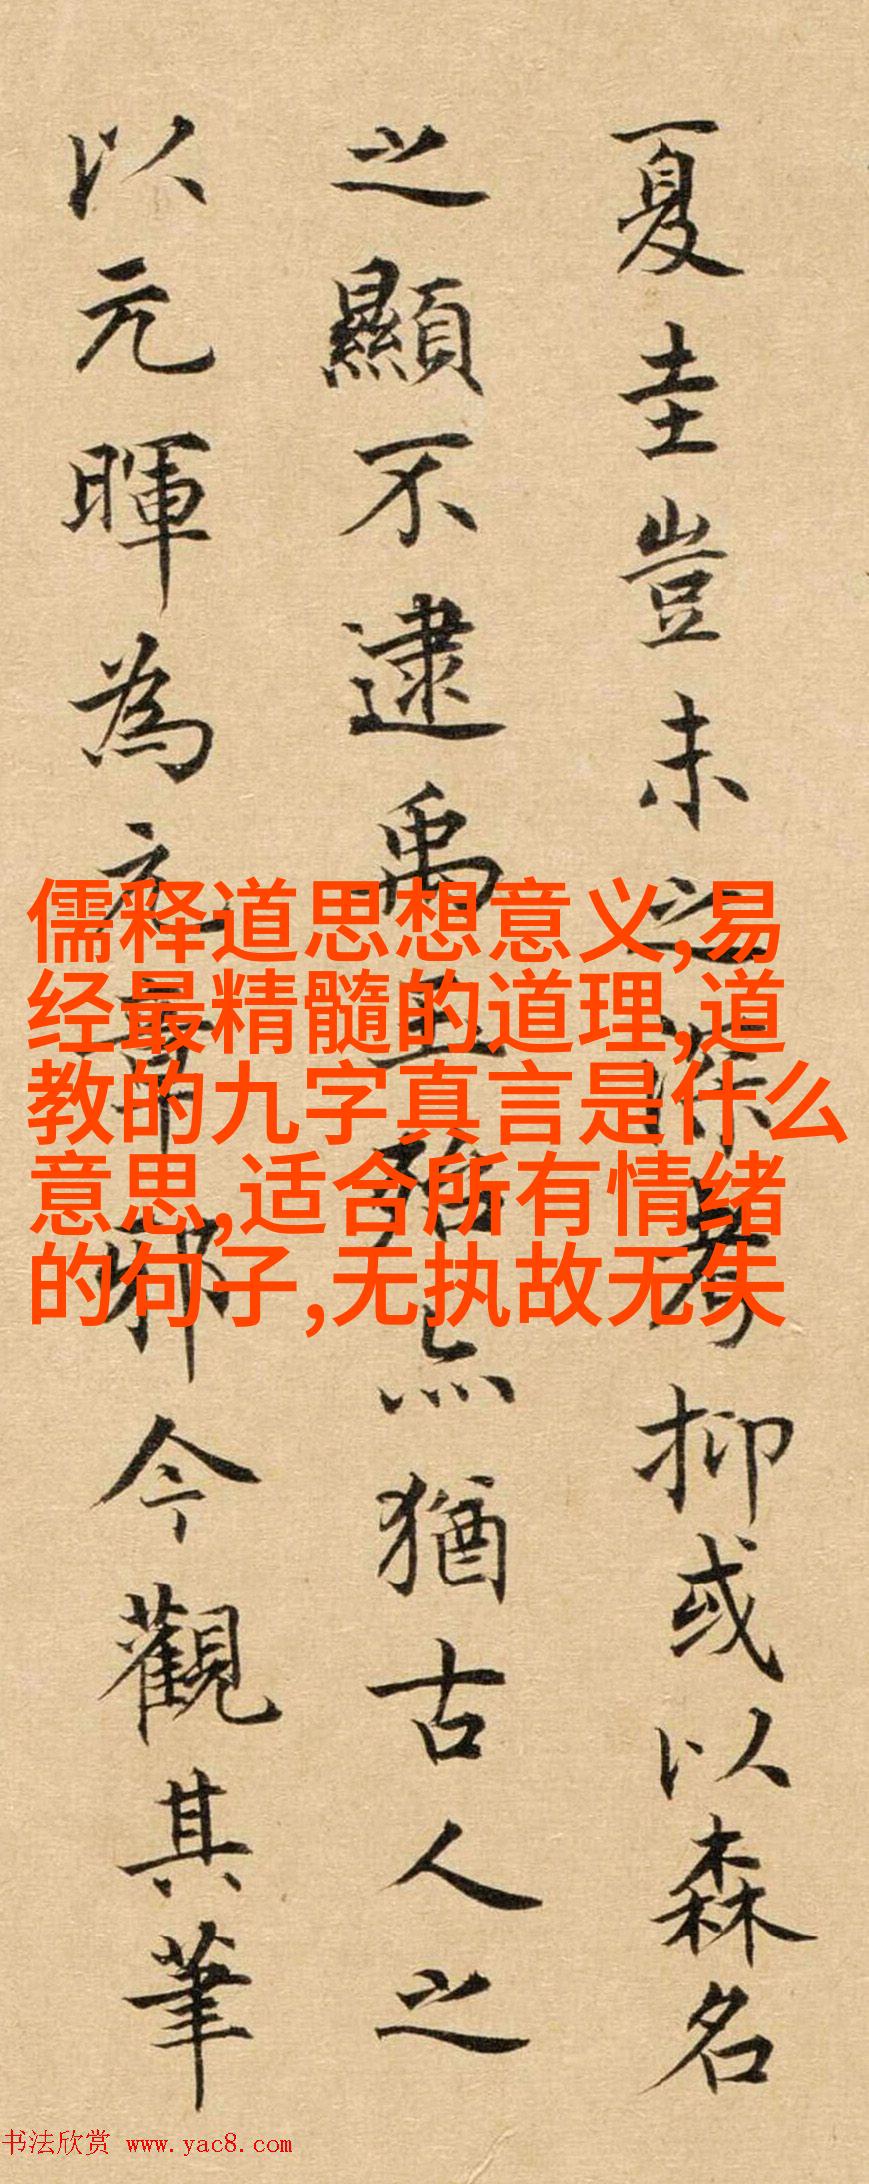 夏圭豈未之深考抑或以森名
之顯不逮禹玉殆亦猶古人之
以元暉為元章耶今觀其筆
儒释道思想意义,易
经最精髓的道理,道
教的九字真言是什么
意思,适合所有情绪
的句子,无执故无失
书法欣赏 www.yac8.com